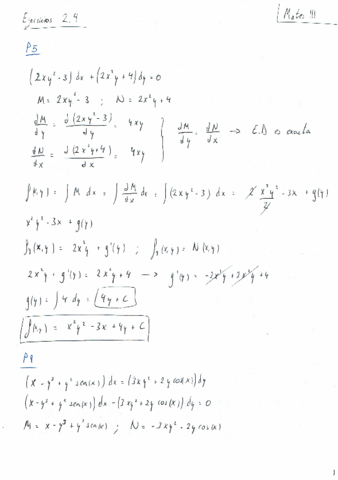 Ejercicios 2.4
Mates III
P5
(2xy² - 3) dx + (2x²y + 4) dy = 0
M = 2xy² - 3 ; N = 2x²y + 4
dM/dy = d(2xy² - 3)/dy = 4xy
dM/dy = dN/dx → E.D es exacta
dN/dx = d(2x²y + 4)/dx = 4xy
f(x,y) = ∫ M dx = ∫ dM/dx dx = ∫ (2xy² - 3) dx = 2 x²y²/2 - 3x + g(y)
x²y² - 3x + g(y)
fy(x,y) = 2x²y + g'(y) ; fy(x,y) = N(x,y)
2x²y + g'(y) = 2x²y + 4 → g'(y) = -2x²y + 2x²y + 4
g(y) = ∫ 4 dy = 4y + C
f(x,y) = x²y² - 3x + 4y + C
P9
(x - y³ + y² sen(x)) dx = (3xy² + 2y cos(x)) dy
(x - y³ + y² sen(x)) dx - (3xy² + 2y cos(x)) dy = 0
M = x - y³ + y² sen(x) ; N = -3xy² - 2y cos(x)
1